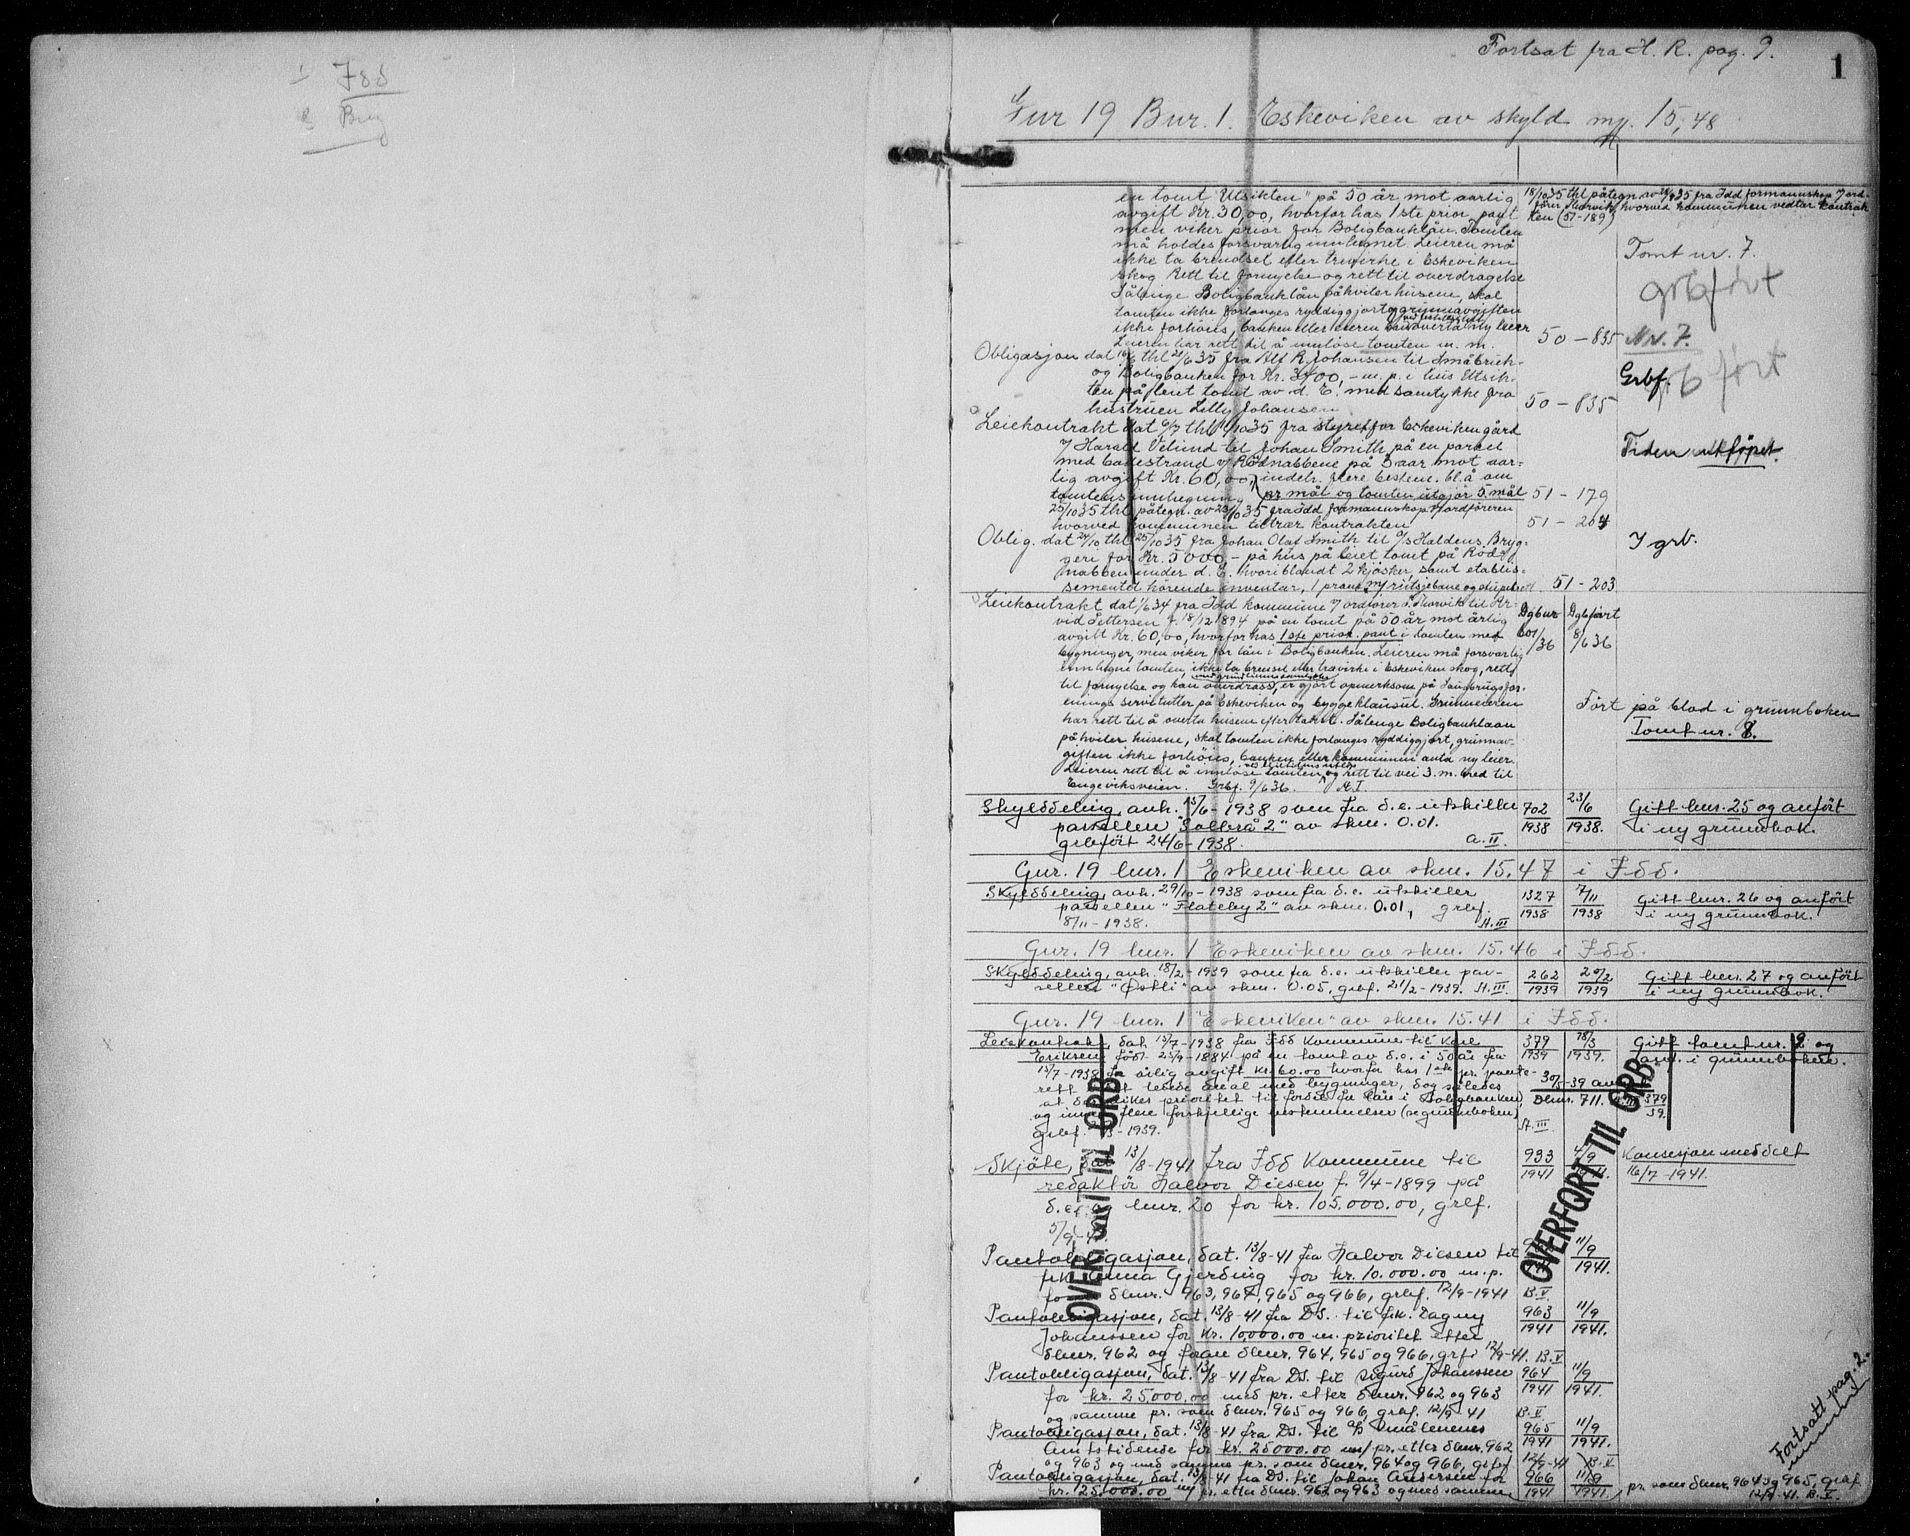 Idd
Brg
Fortsat fra H. R. pag. 9.
1
Gnr 19 Bnr. 1. Eskeviken av skyld mrk. 15,48
en tomt "Utsikten" på 50 år mot aarlig
avgift Kr. 30,00, hvorfor has 1ste prior. pant
men viker prior for Boligbanklån. Tomten
må holdes forsvarlig innhegnet. Leieren må
ikke ta brendsel eller trevirke i Eskeviken
skog. Rett til fornyelse og rett til overdragelse
Sålenge Boligbanklån påhviler husene, skal
tomten ikke forlanges ryddiggjort, grunnavgiften
ikke forhöies, banken eller eieren anta ny leier
Leieren har rett til å innlöse tomten m. m.
50 – 835
18/10 35 thl påtegn. av fra Idd formannskap v/ord-
förer Thorvik, hvorved kommunen vedtar kontrak-
ten (51-189)
Tomt nr. 7.
grbført
Nr. 7.
Obligasjon dat thl 21/6 35 fra Alf R. Johansen til Småbruk-
og Boligbanken for Kr. 3400,– m. p. i hus Utsik-
ten på leiet tomt av d. E. med samtykke fra
hustruen Lilly Johansen
50 – 835
Grbf.
grbført
Leiekontrakt dat 6/7 thl /10 35 fra styret for Eskeviken gård
v/ Harald Velund til Johan Smith på en parcel
med badestrand v/ Rödsnabbene på 5 aar mot aar-
lig avgift Kr. 60,00, indeh. flere bestem. bl. å om
tomtens innhegning pr mål og tomten utgjör 5 mål
51 – 179
Tiden utlöpet.
25/10 35 thl påtegn. av 23/10 35 fra Idd formannskap v/ordföreren
hvorved kommunen tiltrær kontrakten
51 – 204
Oblig. dat 24/10 thl 25/10 35 fra Johan Olaf Smith til A/S Haldens Bryg-
geri for Kr. 5000 – på hus på leiet tomt på Röds-
nabben under d. E. hvoriblandt 2 kjosker, samt etablis-
sementet hörende inventar, 1 pram m/ rutsjebane og
51 – 203
I grb.
Leiekontrakt dat 1/6 34 fra Idd kommune v/ ordförer Thorvik til Ar-
vid Pettersen f. 18/12 1894 på en tomt på 50 år mot årlig
avgift Kr. 60,00, hvorfor has 1ste prior. pant i tomten med
bygninger, men viker for lån i Boligbanken. Leieren må forsvarlig
innhegne tomten, ikke ta brensel eller trævirke i Eskeviken skog, rett
til fornyelse og kan overdrass, er gjort opmerksom på Landbrugsfor-
enings servitutter på Eskeviken og byggeklausul. Grunneieren
har rett til å overta husene efter takst. Sålenge Boligbanklaan
påhviler husene, skal tomten ikke forlanges ryddiggjort, grunnav-
giften ikke forhöies, banken eller kommunen anta ny leier.
Leieren rett til å innlöse tomten og rett til vei 3 m. bred til
Engeviksveien. Grbf. 9/6 36. A.I
Dgbnr 601/36
Dgbført 8/6 36
Ført på blad i grunnboken
Tomt nr. 8.
Skylddeling, avh. 15/6-1938 som fra d.e. utskiller
parsellen "Solbrå 2" av skm. 0.01.
grbført 24/6-1938. A.II.
702/1938
23/6 1938.
Gitt bnr. 25 og anført
i ny grunnbok.
Gnr. 19 bnr. 1 Eskeviken av skm. 15.47 i Idd.
Skylddeling, avh. 29/10-1938 som fra d.e. utskiller
parsellen "Flateby 2" av skm. 0.01, grbf.
8/11-1938. A.III
1327/1938
7/11 1938
Gitt bnr. 26 og anført
i ny grunnbok.
Gnr. 19 bnr. 1 Eskeviken av skm. 15.46 i Idd.
Skylddeling, avh. 18/2-1939 som fra d.e. utskiller par-
sellen "Østli" av skm. 0.05, grbf. 21/2-1939. A.III.
262/1939
20/2 1939
Gitt bnr. 27 og anført
i ny grunnbok.
Gnr. 19 bnr. 1 "Eskeviken" av skm. 15.41 i Idd.
Leiekontrakt, dat. 15/7-1938 fra Idd Kommune til Karl
Eriksen, født 25/9-1884 på en tomt av d.e. i 50 år fra
15/7-1938 for årlig avgift kr. 60.00 hvorfor has 1ste pr. pante-
rett i det leiede areal med bygninger, dog således
at det viker prioritet til fordel for lån i Boligbanken,
og inneh. flere forskjellige bestemmelser (se grunnboken)
grbf. -1939. A.III
379/1939
18/3 1939.
Gitt tomt nr. 2 og
anf. i grunnboken.
30/5-39 anm.
Dbnr. 711. A.III 379/39.
Skjøte, dat. 13/8-1941 fra Idd Kommune til
redaktör Halvor Diesen f. 9/4-1899 på
d.e. og bnr. 20 for kr. 105.000.00, grbf.
5/9-41.
933/1941
4/9 1941.
Konsesjon meddelt
16/7-1941.
Pantobligasjon, dat. 13/8-41 fra Halvor Diesen til
frk. Anna Gjerding for kr. 10.000.00 m.p.
foran dbnr. 963, 964, 965 og 966, grbf. 12/9-1941 B.V.
11/9 1941.
Pantobligasjon, dat. 13/8-41 fra DS. til frk. Dagny
Johanssen for kr. 10.000.00 m. prioritet etter
dbnr. 962 og foran dbnr. 964, 965 og 966, grbf. 12/9-41. B.V
963/1941
11/9 1941.
Pantobligasjon, dat. 13/8-41 fra DS. til Sigurd Johanssen
for kr. 25.000.00 med pr. etter dbnr. 962 og 963
og samme pr. som dbnr. 965 og 966, grbf. 12/9-41 B.V
964/1941
11/9 1941.
Pantobligasjon, dat. 13/8-41 fra DS. til A/S Smålenenes
Amtstidende for kr. 25000.00 m/ pr. etter dbnr. 962
og 963 og med samme pr. som dbnr. 964 og 966, grbf. 12/9-41 B.V
965/1941
11/9 1941.
Pantobligasjon, dat. 13/8-41 fra DS. til Johan Andersen for
kr. 125.000.00 m/ pr. etter dbnr. 962 og 963 og med samme
966/1941
11/9 1941
pr. som dbnr. 964 og 965, grbf.
12/9-41. B.V.
Fortsatt pag. 2.
OVERFØRT TIL GRB
OVERFØRT TIL GRB.